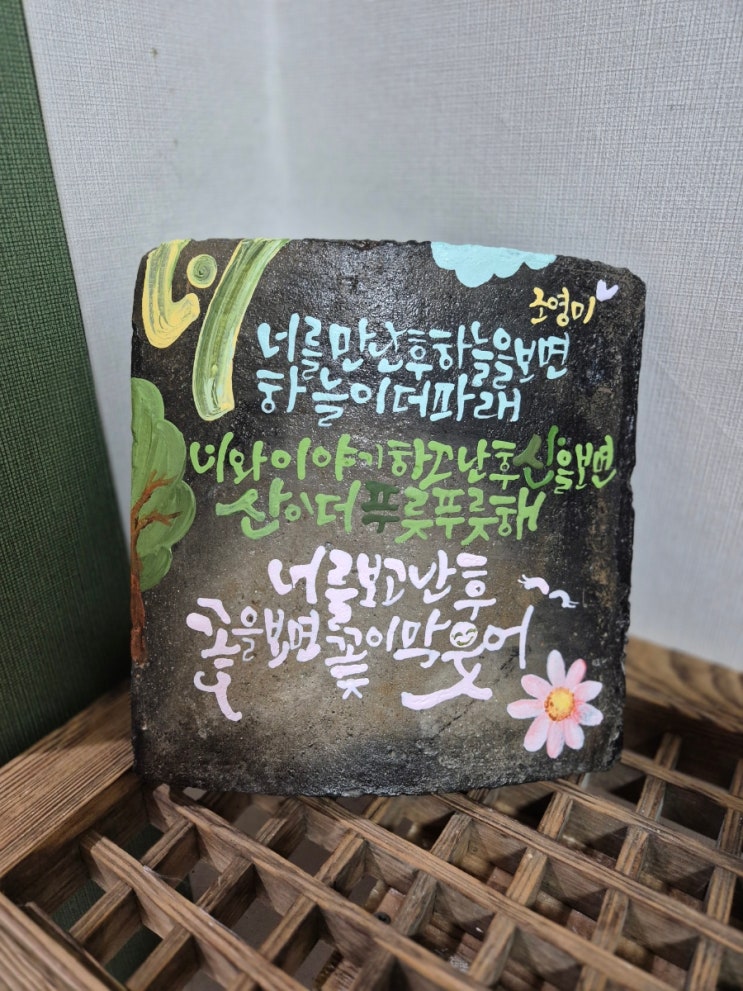 너
조영미
너를 만난 후 하늘을 보면
하늘이 더 파래
너와 이야기하고 난 후 산을 보면
산이 더 푸릇푸릇해
너를 보고 난 후
꽃을 보면 꽃이 막 웃어